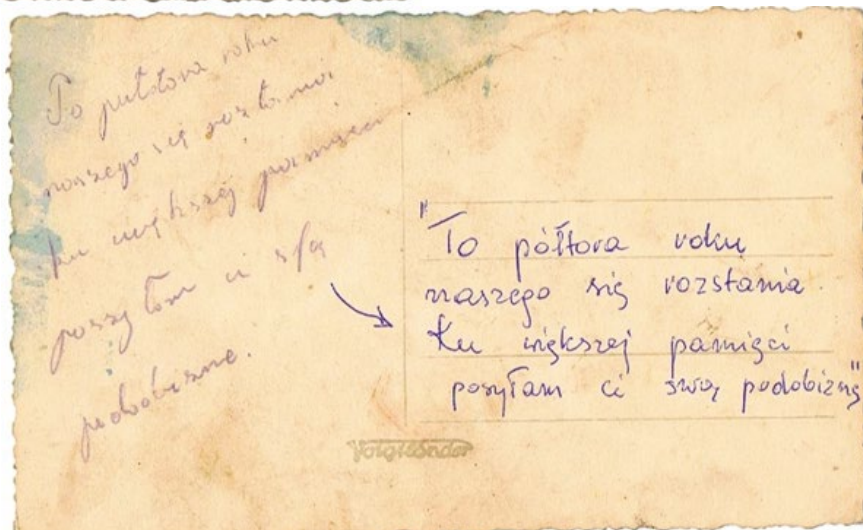 To półtora roku
naszego się roztania
ku większej pamięci
posyłam ci sfą
podobizne.
"To półtora roku
naszego się rozstania
Ku większej pamięci
posyłam ci swoją podobiznę"
Voigtländer